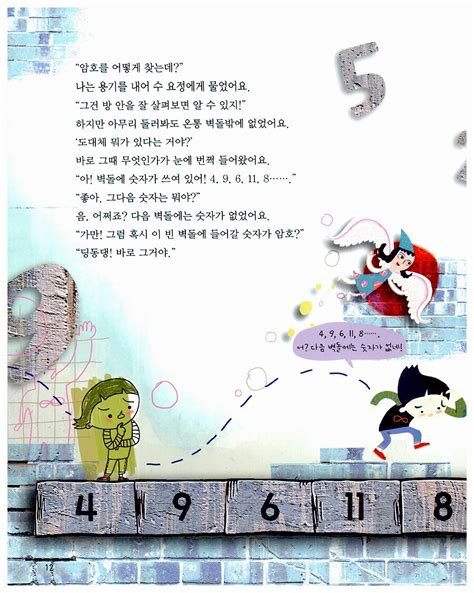 “암호를 어떻게 찾는데?”
나는 용기를 내어 수 요정에게 물었어요.
“그건 방 안을 잘 살펴보면 알 수 있지!”
하지만 아무리 둘러봐도 온통 벽돌밖에 없었어요.
‘도대체 뭐가 있다는 거야?’
바로 그때 무엇인가가 눈에 번쩍 들어왔어요.
“아! 벽돌에 숫자가 쓰여 있어! 4, 9, 6, 11, 8…….”
“좋아. 그다음 숫자는 뭐야?”
음, 어쩌죠? 다음 벽돌에는 숫자가 없었어요.
“가만! 그럼 혹시 이 빈 벽돌에 들어갈 숫자가 암호?”
“딩동댕! 바로 그거야.”
5
2
9
4, 9, 6, 11, 8…….
어? 다음 벽돌에는 숫자가 없네!
4 9 6 11 8
12